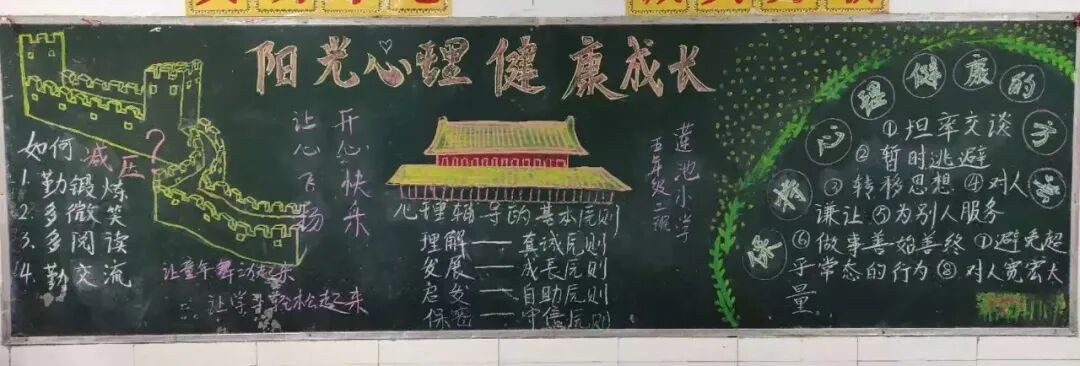 阳光心理健康成长
如何减压?
1. 勤锻炼
2. 多微笑
3. 多阅读
4. 勤交流
让心飞扬
开心快乐
让童年舞动起来
让学习轻松起来
心理辅导的基本原则
理解——真诚原则
发展——成长原则
启发——自助原则
保密——守信原则
莲池小学
五年级二班
保持心理健康的方法
①坦率交谈
②暂时逃避
③转移思想④对人
谦让⑤为别人服务
⑥做事善始善终⑦避免超
乎常态的行为⑧对人宽宏大
量。